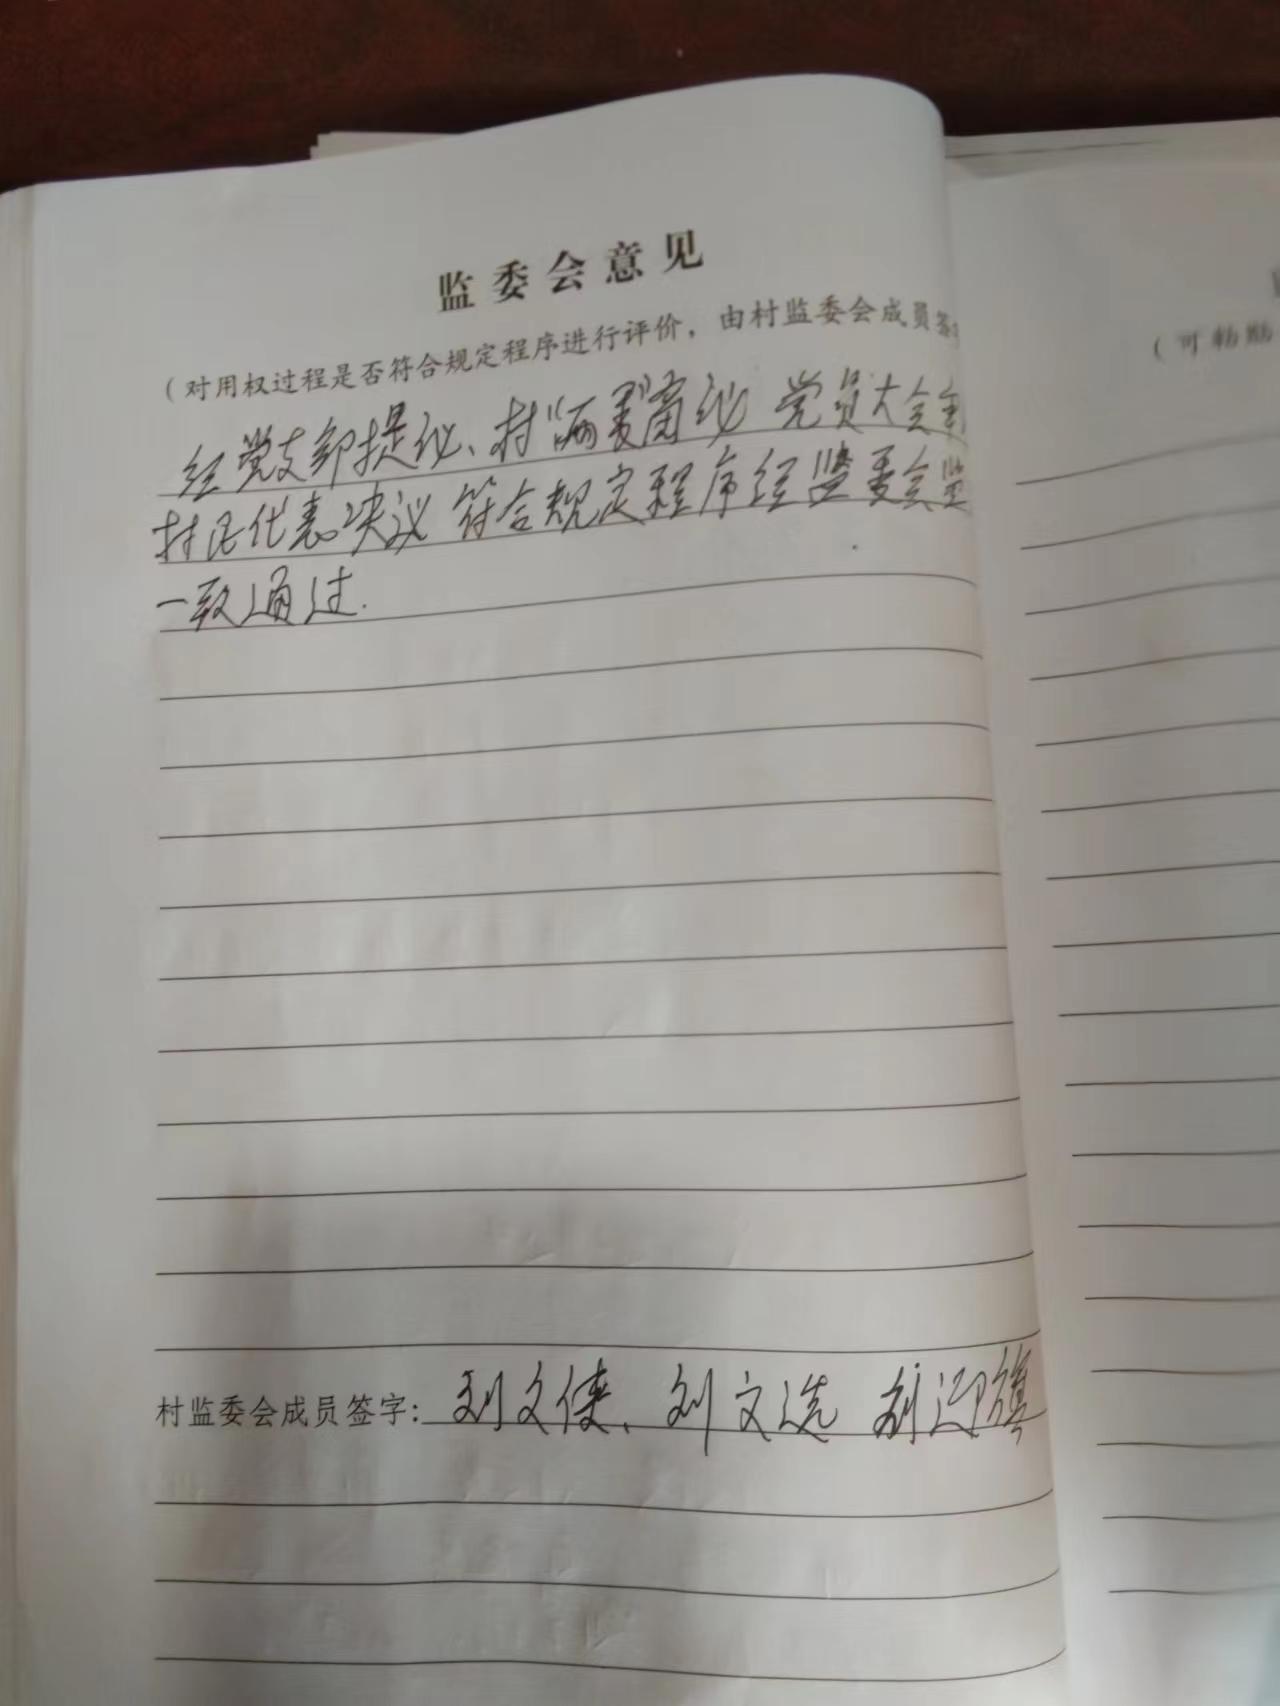 监委会意见
（对用权过程是否符合规定程序进行评价，由村监委会成员签
（可粘贴
经党支部提议、村“两委”商议 党员大会
村民代表决议 符合规定程序经监委会监
一致通过.
村监委会成员签字：刘文侠、刘文选 刘迎旗